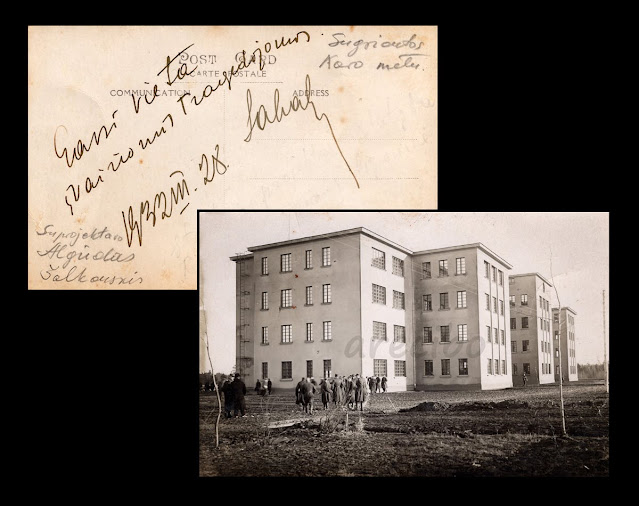 POST CARD
CARTE POSTALE
COMMUNICATION
ADDRESS
Sugriautos
Karo metu.
Garsi vieta
įvairiomis tragedijomis.
1932 III 28.
Suprojektavo
Algirdas
Šalkauskis
areдоо